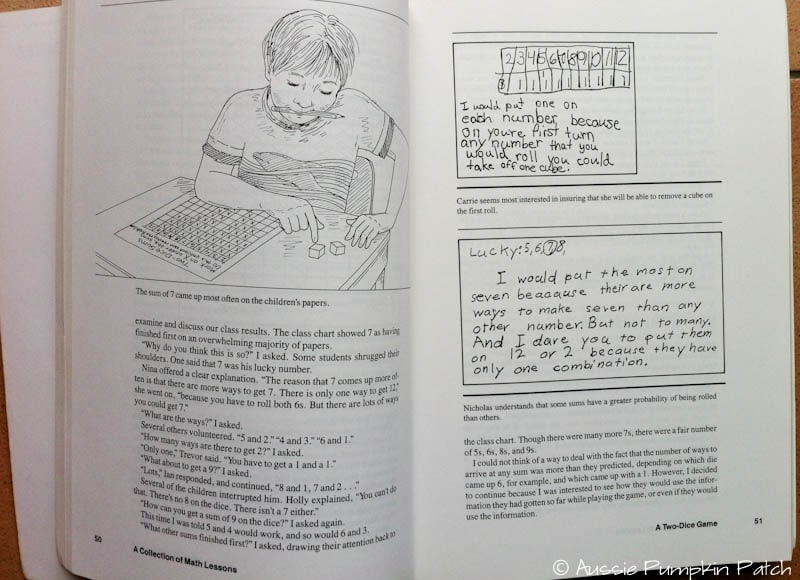 The sum of 7 came up most often on the children's papers.
examine and discuss our class results. The class chart showed 7 as having
finished first on an overwhelming majority of papers.
"Why do you think this is so?" I asked. Some students shrugged their
shoulders. One said that 7 was his lucky number.
Nina offered a clear explanation. "The reason that 7 comes up more of-
ten is that there are more ways to get 7. There is only one way to get 12,"
she went on, "because you have to roll both 6s. But there are lots of ways
you could get 7."
"What are the ways?" I asked.
Several others volunteered. "5 and 2." "4 and 3." "6 and 1."
"How many ways are there to get 2?" I asked.
"Only one," Trevor said. "You have to get a 1 and a 1."
"What about to get a 9?" I asked.
"Lots," Ian responded, and continued, "8 and 1, 7 and 2 . . ."
Several of the children interrupted him. Holly explained, "You can't do
that. There's no 8 on the dice. There isn't a 7 either."
"How can you get a sum of 9 on the dice?" I asked again.
This time I was told 5 and 4 would work, and so would 6 and 3.
"What other sums finished first?" I asked, drawing their attention back to
50
A Collection of Math Lessons
2 3 4 5 6 7 8 9 10 11 12
I would put one on
each number because
on youre first turn
any number that you
would roll you could
take off one cube.
Carrie seems most interested in insuring that she will be able to remove a cube on
the first roll.
Lucky: 5, 6, 7, 8,
I would put the most on
seven beacause their are more
ways to make seven than any
other number. But not to many.
And I dare you to put them
on 12 or 2 because they have
only one combination.
Nicholas understands that some sums have a greater probability of being rolled
than others.
the class chart. Though there were many more 7s, there were a fair number
of 5s, 6s, 8s, and 9s.
I could not think of a way to deal with the fact that the number of ways to
arrive at any sum was more than they predicted, depending on which die
came up 6, for example, and which came up with a 1. However, I decided
to continue because I was interested to see how they would use the infor-
mation they had gotten so far while playing the game, or even if they would
use the information.
A Two-Dice Game
51
© Aussie Pumpkin Patch